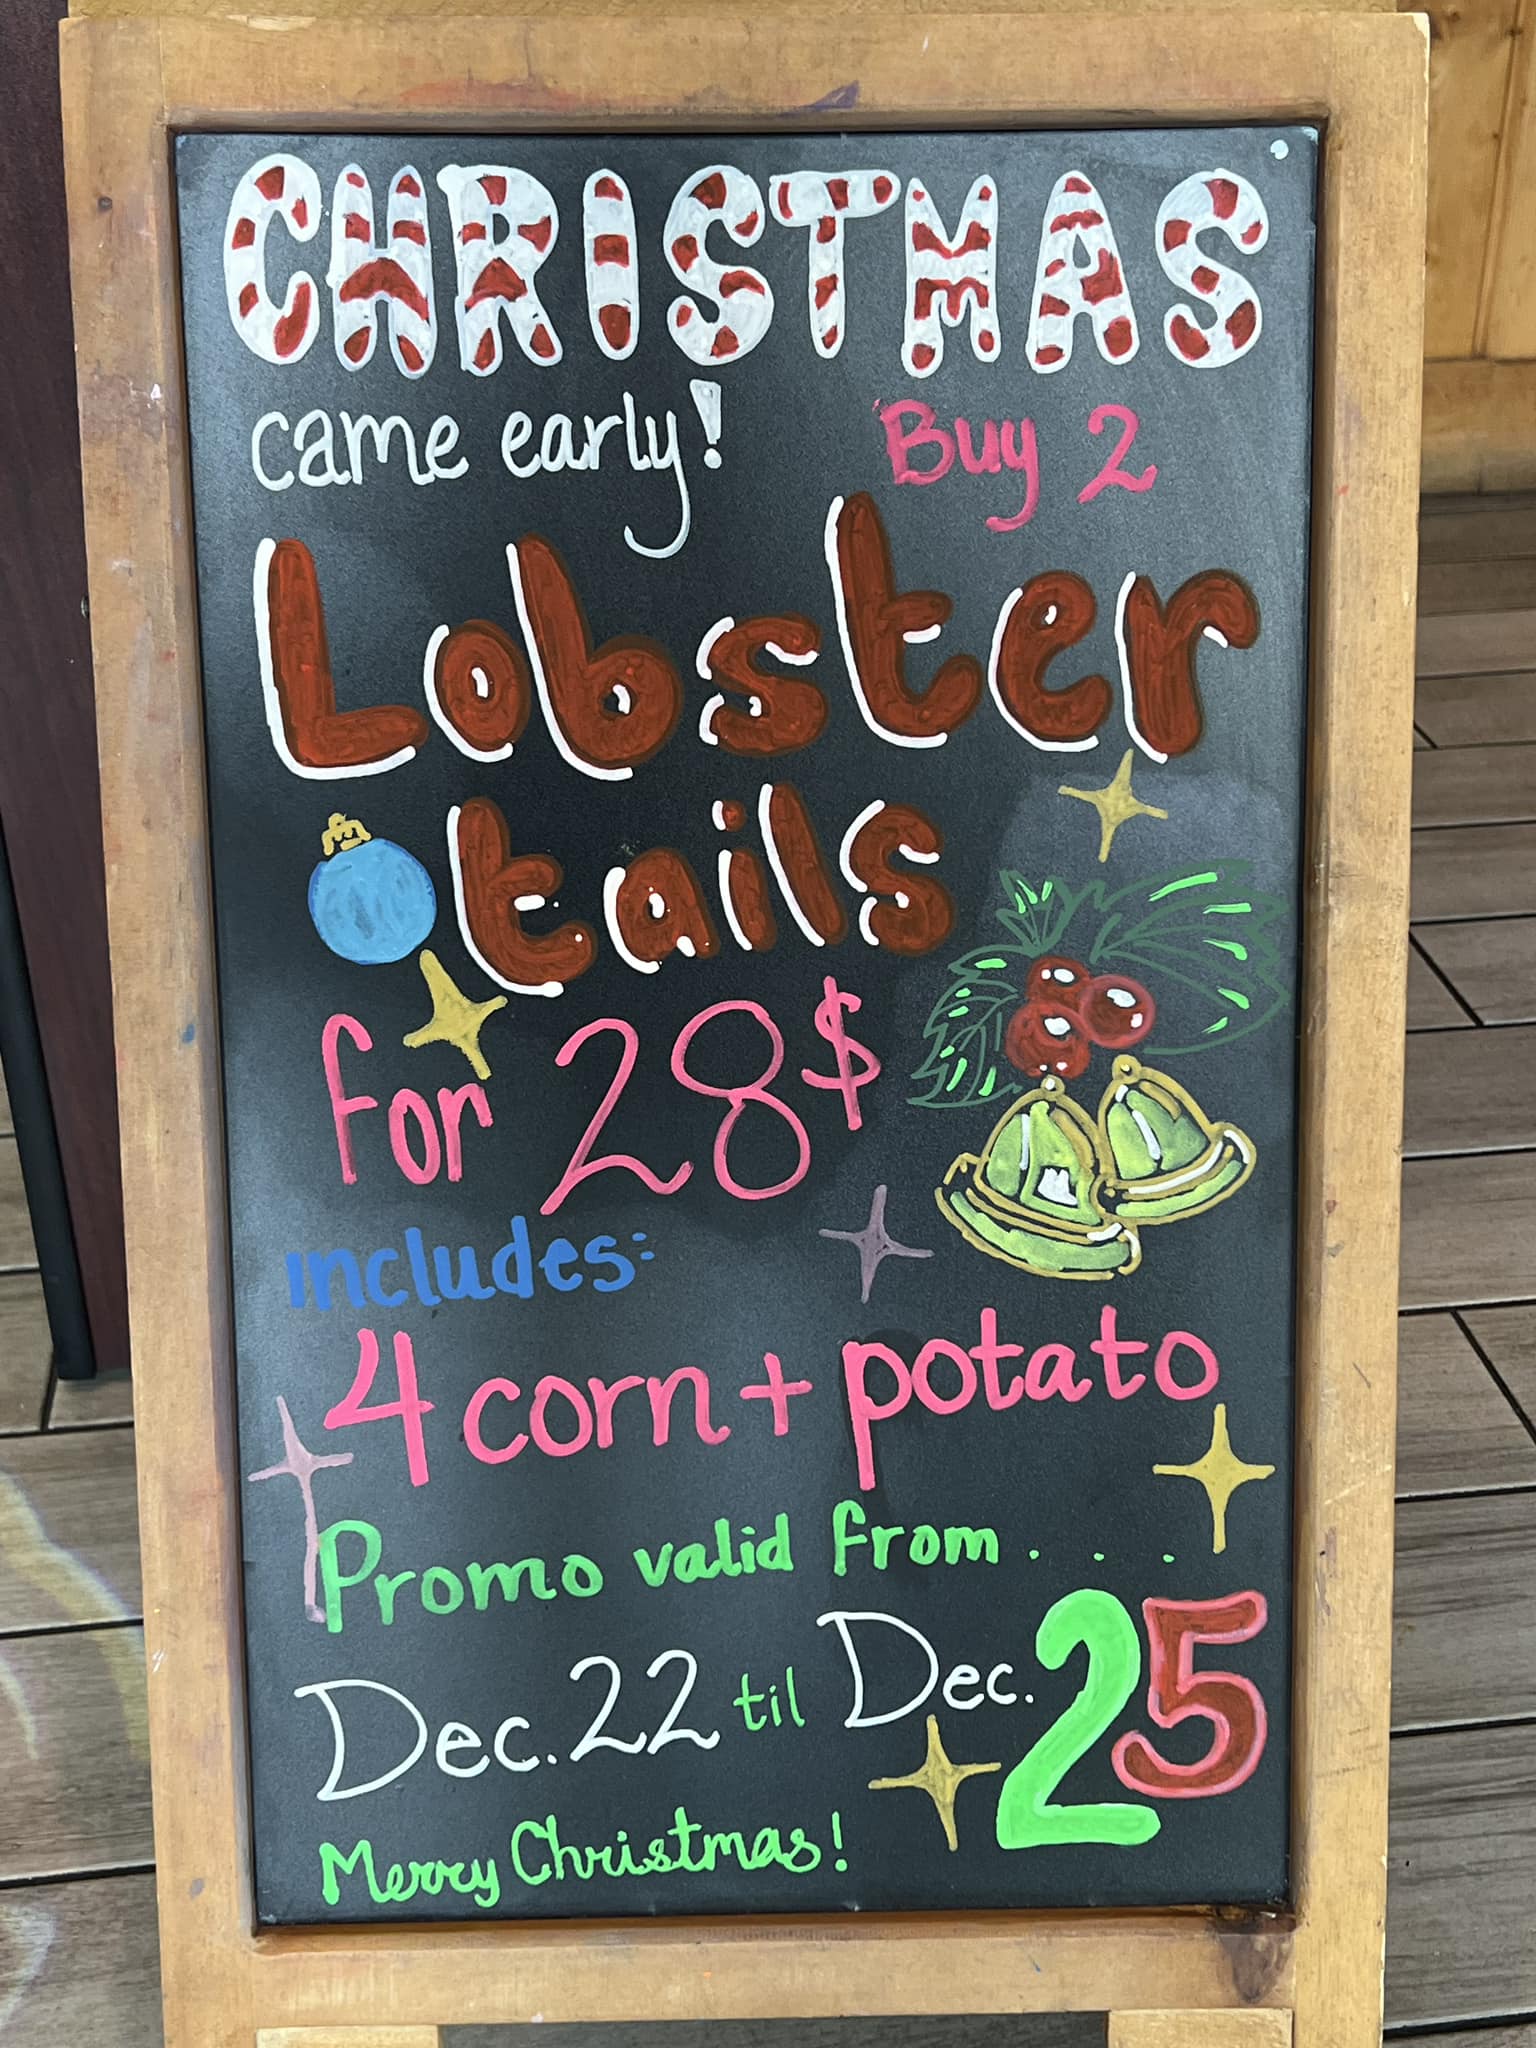 CHRISTMAS
came early! Buy 2
Lobster
tails
for 28$
includes:
4 corn + potato
Promo valid from . . .
Dec. 22 til Dec. 25
Merry Christmas!